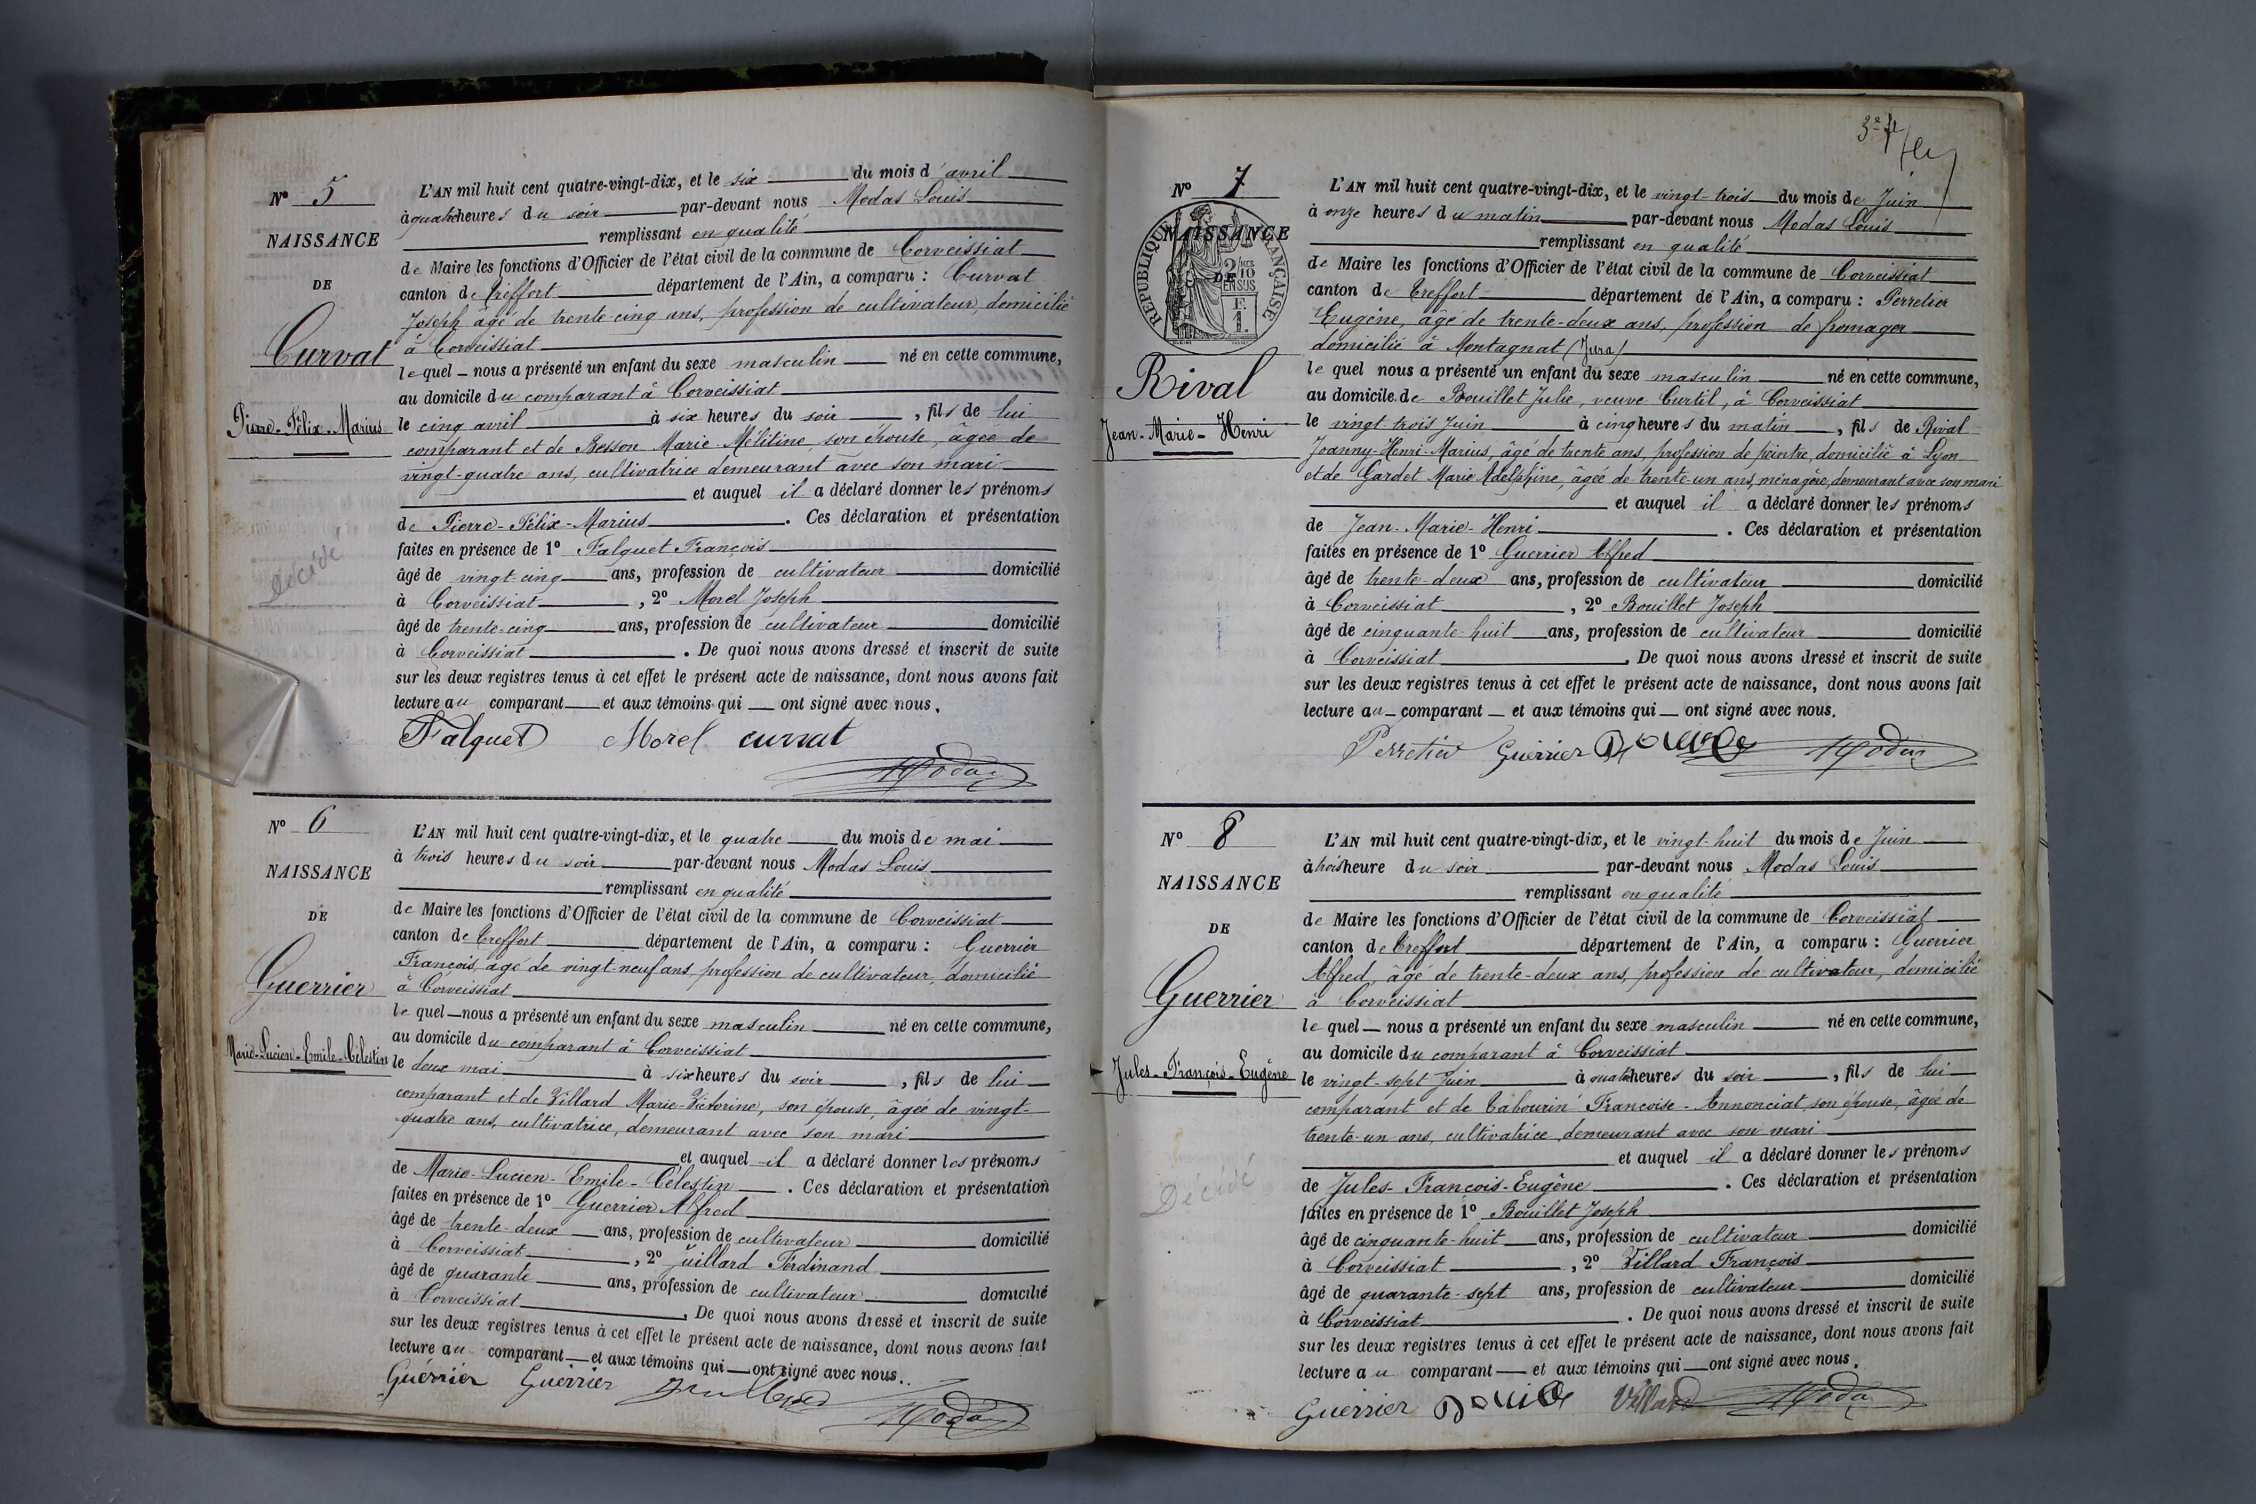 Nº 5
NAISSANCE
DE
Curvat
Pierre-Félix-Marius
Décédé
L'AN mil huit cent quatre-vingt-dix, et le six du mois d'avril
à quatre heures du soir par-devant nous Modas Louis
remplissant en qualité
de Maire les fonctions d'Officier de l'état civil de la commune de Corveissiat
canton de Treffort département de l'Ain, a comparu : Curvat
Joseph âgé de trente cinq ans, profession de cultivateur, domicilié
à Corveissiat
lequel nous a présenté un enfant du sexe masculin né en cette commune,
au domicile du comparant à Corveissiat
le cinq avril à six heures du soir, fils de lui
comparant et de Besson Marie-Mélitine, son épouse, âgée de
vingt-quatre ans, cultivatrice demeurant avec son mari
et auquel il a déclaré donner les prénoms
de Pierre-Félix-Marius. Ces déclaration et présentation
faites en présence de 1º Falquet François
âgé de vingt-cinq ans, profession de cultivateur domicilié
à Corveissiat, 2º Morel Joseph
âgé de trente-cinq ans, profession de cultivateur domicilié
à Corveissiat. De quoi nous avons dressé et inscrit de suite
sur les deux registres tenus à cet effet le présent acte de naissance, dont nous avons fait
lecture au comparant et aux témoins qui ont signé avec nous.
Falquet Morel curvat
Modas
Nº 6
NAISSANCE
DE
Guerrier
Marie-Lucien-Emile-Célestin
L'AN mil huit cent quatre-vingt-dix, et le quatre du mois de mai
à trois heures du soir par-devant nous Modas Louis
remplissant en qualité
de Maire les fonctions d'Officier de l'état civil de la commune de Corveissiat
canton de Treffort département de l'Ain, a comparu : Guerrier
François, âgé de vingt-neuf ans, profession de cultivateur, domicilié
à Corveissiat
lequel nous a présenté un enfant du sexe masculin né en cette commune,
au domicile du comparant à Corveissiat
le deux mai à six heures du soir, fils de lui
comparant et de Villard Marie-Victorine, son épouse, âgée de vingt-
quatre ans, cultivatrice, demeurant avec son mari
et auquel il a déclaré donner les prénoms
de Marie-Lucien-Emile-Célestin. Ces déclaration et présentation
faites en présence de 1º Guerrier Alfred
âgé de trente-deux ans, profession de cultivateur domicilié
à Corveissiat, 2º Juillard Ferdinand
âgé de quarante ans, profession de cultivateur domicilié
à Corveissiat. De quoi nous avons dressé et inscrit de suite
sur les deux registres tenus à cet effet le présent acte de naissance, dont nous avons fait
lecture au comparant et aux témoins qui ont signé avec nous.
Guérrier Guerrier
Modas
Nº 7
NAISSANCE
DE
RÉPUBLIQUE FRANÇAISE
2/10 EN SUS
Rival
Jean-Marie-Henri
L'AN mil huit cent quatre-vingt-dix, et le vingt-trois du mois de Juin
à onze heures du matin par-devant nous Modas Louis
remplissant en qualité
de Maire les fonctions d'Officier de l'état civil de la commune de Corveissiat
canton de Treffort département de l'Ain, a comparu : Perretier
Eugène, âgé de trente-deux ans, profession de fromager
domicilié à Montagnat (Jura)
lequel nous a présenté un enfant du sexe masculin né en cette commune,
au domicile de Bouillet Julie, veuve Curtil, à Corveissiat
le vingt trois Juin à cinq heures du matin, fils de Rival
Joanny-Henri-Marius, âgé de trente ans, profession de peintre, domicilié à Lyon
et de Gardet Marie Adelphine, âgée de trente-un ans, ménagère, demeurant avec son mari
et auquel il a déclaré donner les prénoms
de Jean-Marie-Henri. Ces déclaration et présentation
faites en présence de 1º Guerrier Alfred
âgé de trente-deux ans, profession de cultivateur domicilié
à Corveissiat, 2º Bouillet Joseph
âgé de cinquante-huit ans, profession de cultivateur domicilié
à Corveissiat. De quoi nous avons dressé et inscrit de suite
sur les deux registres tenus à cet effet le présent acte de naissance, dont nous avons fait
lecture au comparant et aux témoins qui ont signé avec nous.
Perretier Guerrier Modas
Nº 8
NAISSANCE
DE
Guerrier
Jules-François-Eugène
Décédé
L'AN mil huit cent quatre-vingt-dix, et le vingt-huit du mois de Juin
à trois heure du soir par-devant nous Modas Louis
remplissant en qualité
de Maire les fonctions d'Officier de l'état civil de la commune de Corveissiat
canton de Treffort département de l'Ain, a comparu : Guerrier
Alfred, âgé de trente-deux ans, profession de cultivateur, domicilié
à Corveissiat
lequel nous a présenté un enfant du sexe masculin né en cette commune,
au domicile du comparant à Corveissiat
le vingt-sept Juin à quatre heures du soir, fils de lui
comparant et de Tabourin Françoise-Annonciat, son épouse, âgée de
trente-un ans, cultivatrice, demeurant avec son mari
et auquel il a déclaré donner les prénoms
de Jules-François-Eugène. Ces déclaration et présentation
faites en présence de 1º Bouillet Joseph
âgé de cinquante-huit ans, profession de cultivateur domicilié
à Corveissiat, 2º Villard François
âgé de quarante-sept ans, profession de cultivateur domicilié
à Corveissiat. De quoi nous avons dressé et inscrit de suite
sur les deux registres tenus à cet effet le présent acte de naissance, dont nous avons fait
lecture au comparant et aux témoins qui ont signé avec nous.
Guerrier Villard Modas